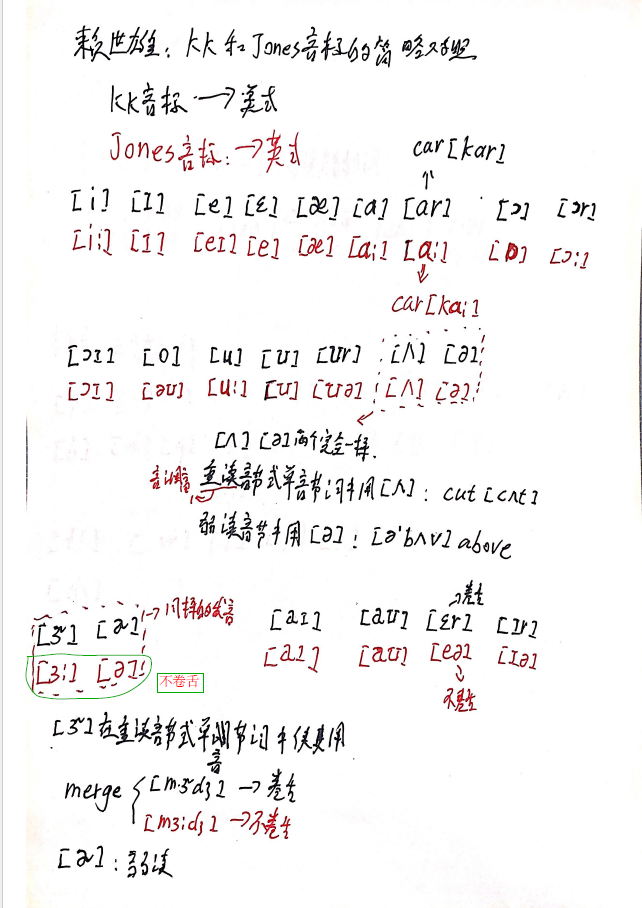 赖世雄：KK和Jones音标的简略对照
KK音标 → 美式
Jones音标：→ 英式
car [kar]
[i] [ɪ] [e] [ɛ] [æ] [ɑ] [ɑr] [ɔ] [ɔr]
[i:] [ɪ] [eɪ] [e] [æ] [ɑ:] [ɑ:] [ɒ] [ɔ:]
car [kɑ:]
[ɔɪ] [o] [u] [ʊ] [ʊr] [ʌ] [ə]
[ɔɪ] [əʊ] [u:] [ʊ] [ʊə] [ʌ] [ə]
[ʌ] [ə] 两个完全一样.
重读音节或单音节词中用[ʌ]：cut [cʌt]
弱读音节中用[ə]：[ə'bʌv] above
→卷舌
→同样的发音
[ɝ] [ɚ] [aɪ] [aʊ] [ɛr] [ɪr]
[ɜ:] [ə] [aɪ] [aʊ] [eə] [ɪə]
不卷舌
不卷舌
[ɝ]在重读音节或单音节词中使用
merge [mɝdʒ] → 卷舌
[mɜ:dʒ] → 不卷舌
[ɚ]：弱读